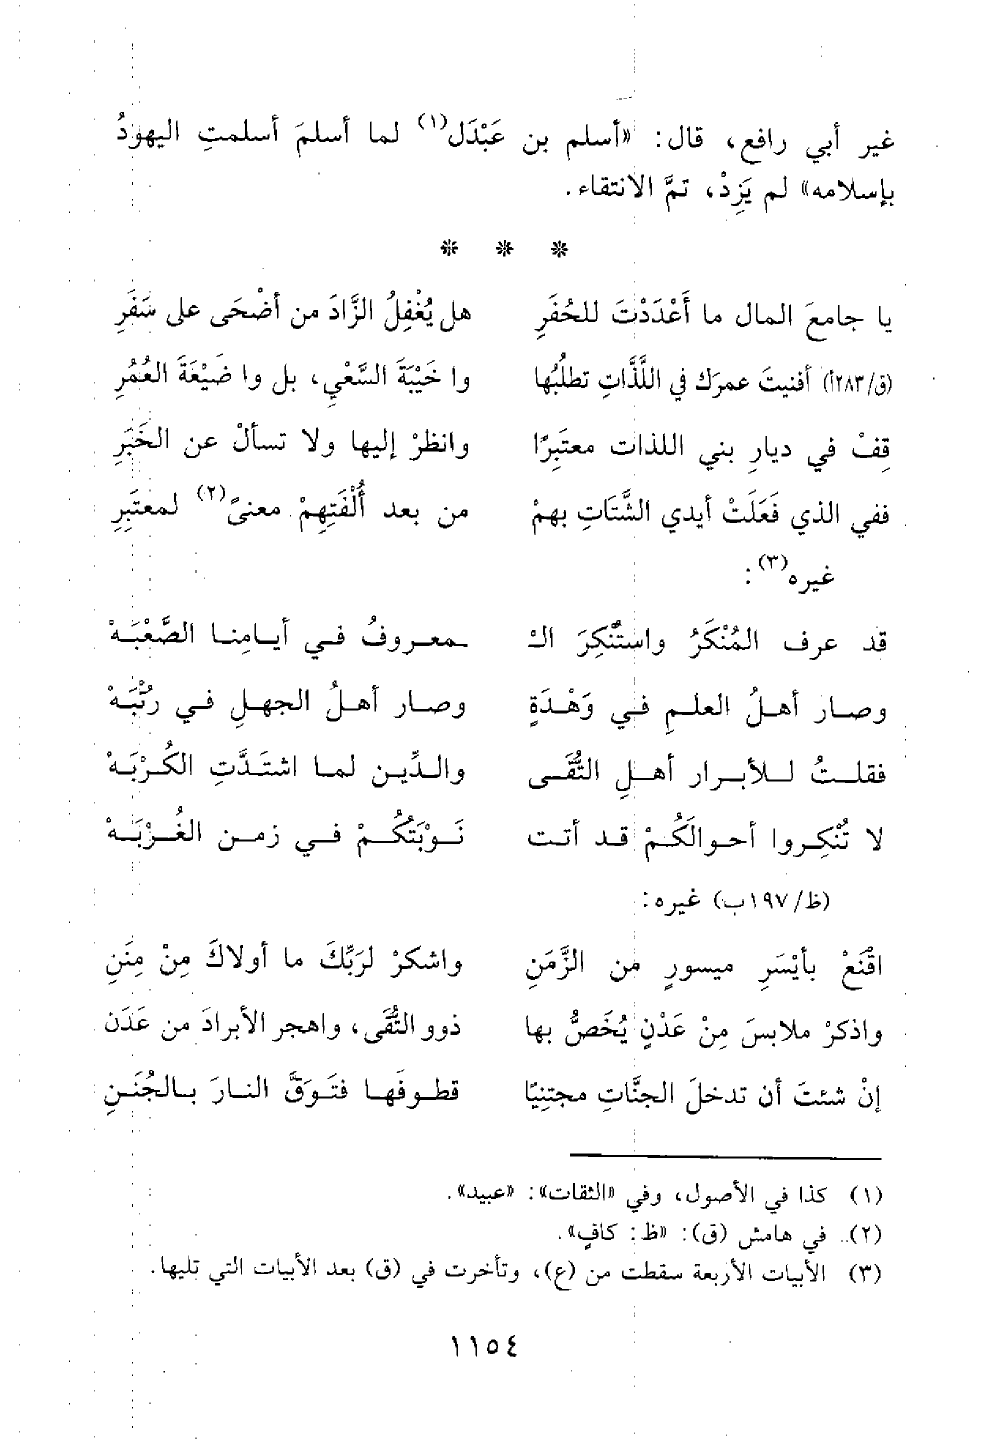 غير أبي رافع، قال: «أسلم بن عَبْدَل(١) لما أسلمَ أسلمتِ اليهودُ
بإسلامه» لم يَزِدْ، تمَّ الانتقاء.
* * *
يا جامعَ المال ما أَعْدَدْتَ للحُفَرِ هل يُغْفِلُ الزَّادَ من أضْحَى على سَفَرِ
(ق/٢٨٣أ) أفنيتَ عمرَك في اللَّذَّاتِ تطلبُها وا خَيْبَةَ السَّعْيِ، بل وا ضَيْعَةَ العُمُرِ
قِفْ في ديارِ بني اللذات معتَبِرًا وانظرْ إليها ولا تسألْ عن الخَبَرِ
ففي الذي فَعَلَتْ أيدي الشَّتَاتِ بهمْ من بعد أُلْفَتِهِمْ معنىً(٢) لمعتَبِرِ
غيره(٣):
قد عرف المُنْكَرُ واستُنْكِرَ الـ ـمعروفُ في أيامِنا الصَّعْبَهْ
وصار أهلُ العلمِ في وَهْدَةٍ وصار أهلُ الجهلِ في رتْبَهْ
فقلتُ للأبرار أهلِ التُّقَى والدِّين لما اشتَدَّتِ الكُرْبَهْ
لا تُنْكِروا أحوالَكُمْ قد أتت نَوْبَتُكُمْ في زمن الغُرْبَهْ
(ظ/١٩٧ب) غيره:
اقْنَعْ بأيْسَرِ ميسورٍ من الزَّمَنِ واشكرْ لرَبِّكَ ما أولاكَ مِنْ مِنَنِ
واذكرْ ملابسَ مِنْ عَدْنٍ يُخَصُّ بها ذوو التُّقَى، واهجر الأبرادَ من عَدَن
إنْ شئتَ أن تدخلَ الجنَّاتِ مجتنِيًا قطوفَها فتَوَقَّ النارَ بالجُنَنِ
(١) كذا في الأصول، وفي «الثقات»: «عبيد».
(٢) في هامش (ق): «ظ: كافٍ».
(٣) الأبيات الأربعة سقطت من (ع)، وتأخرت في (ق) بعد الأبيات التي تليها.
١١٥٤